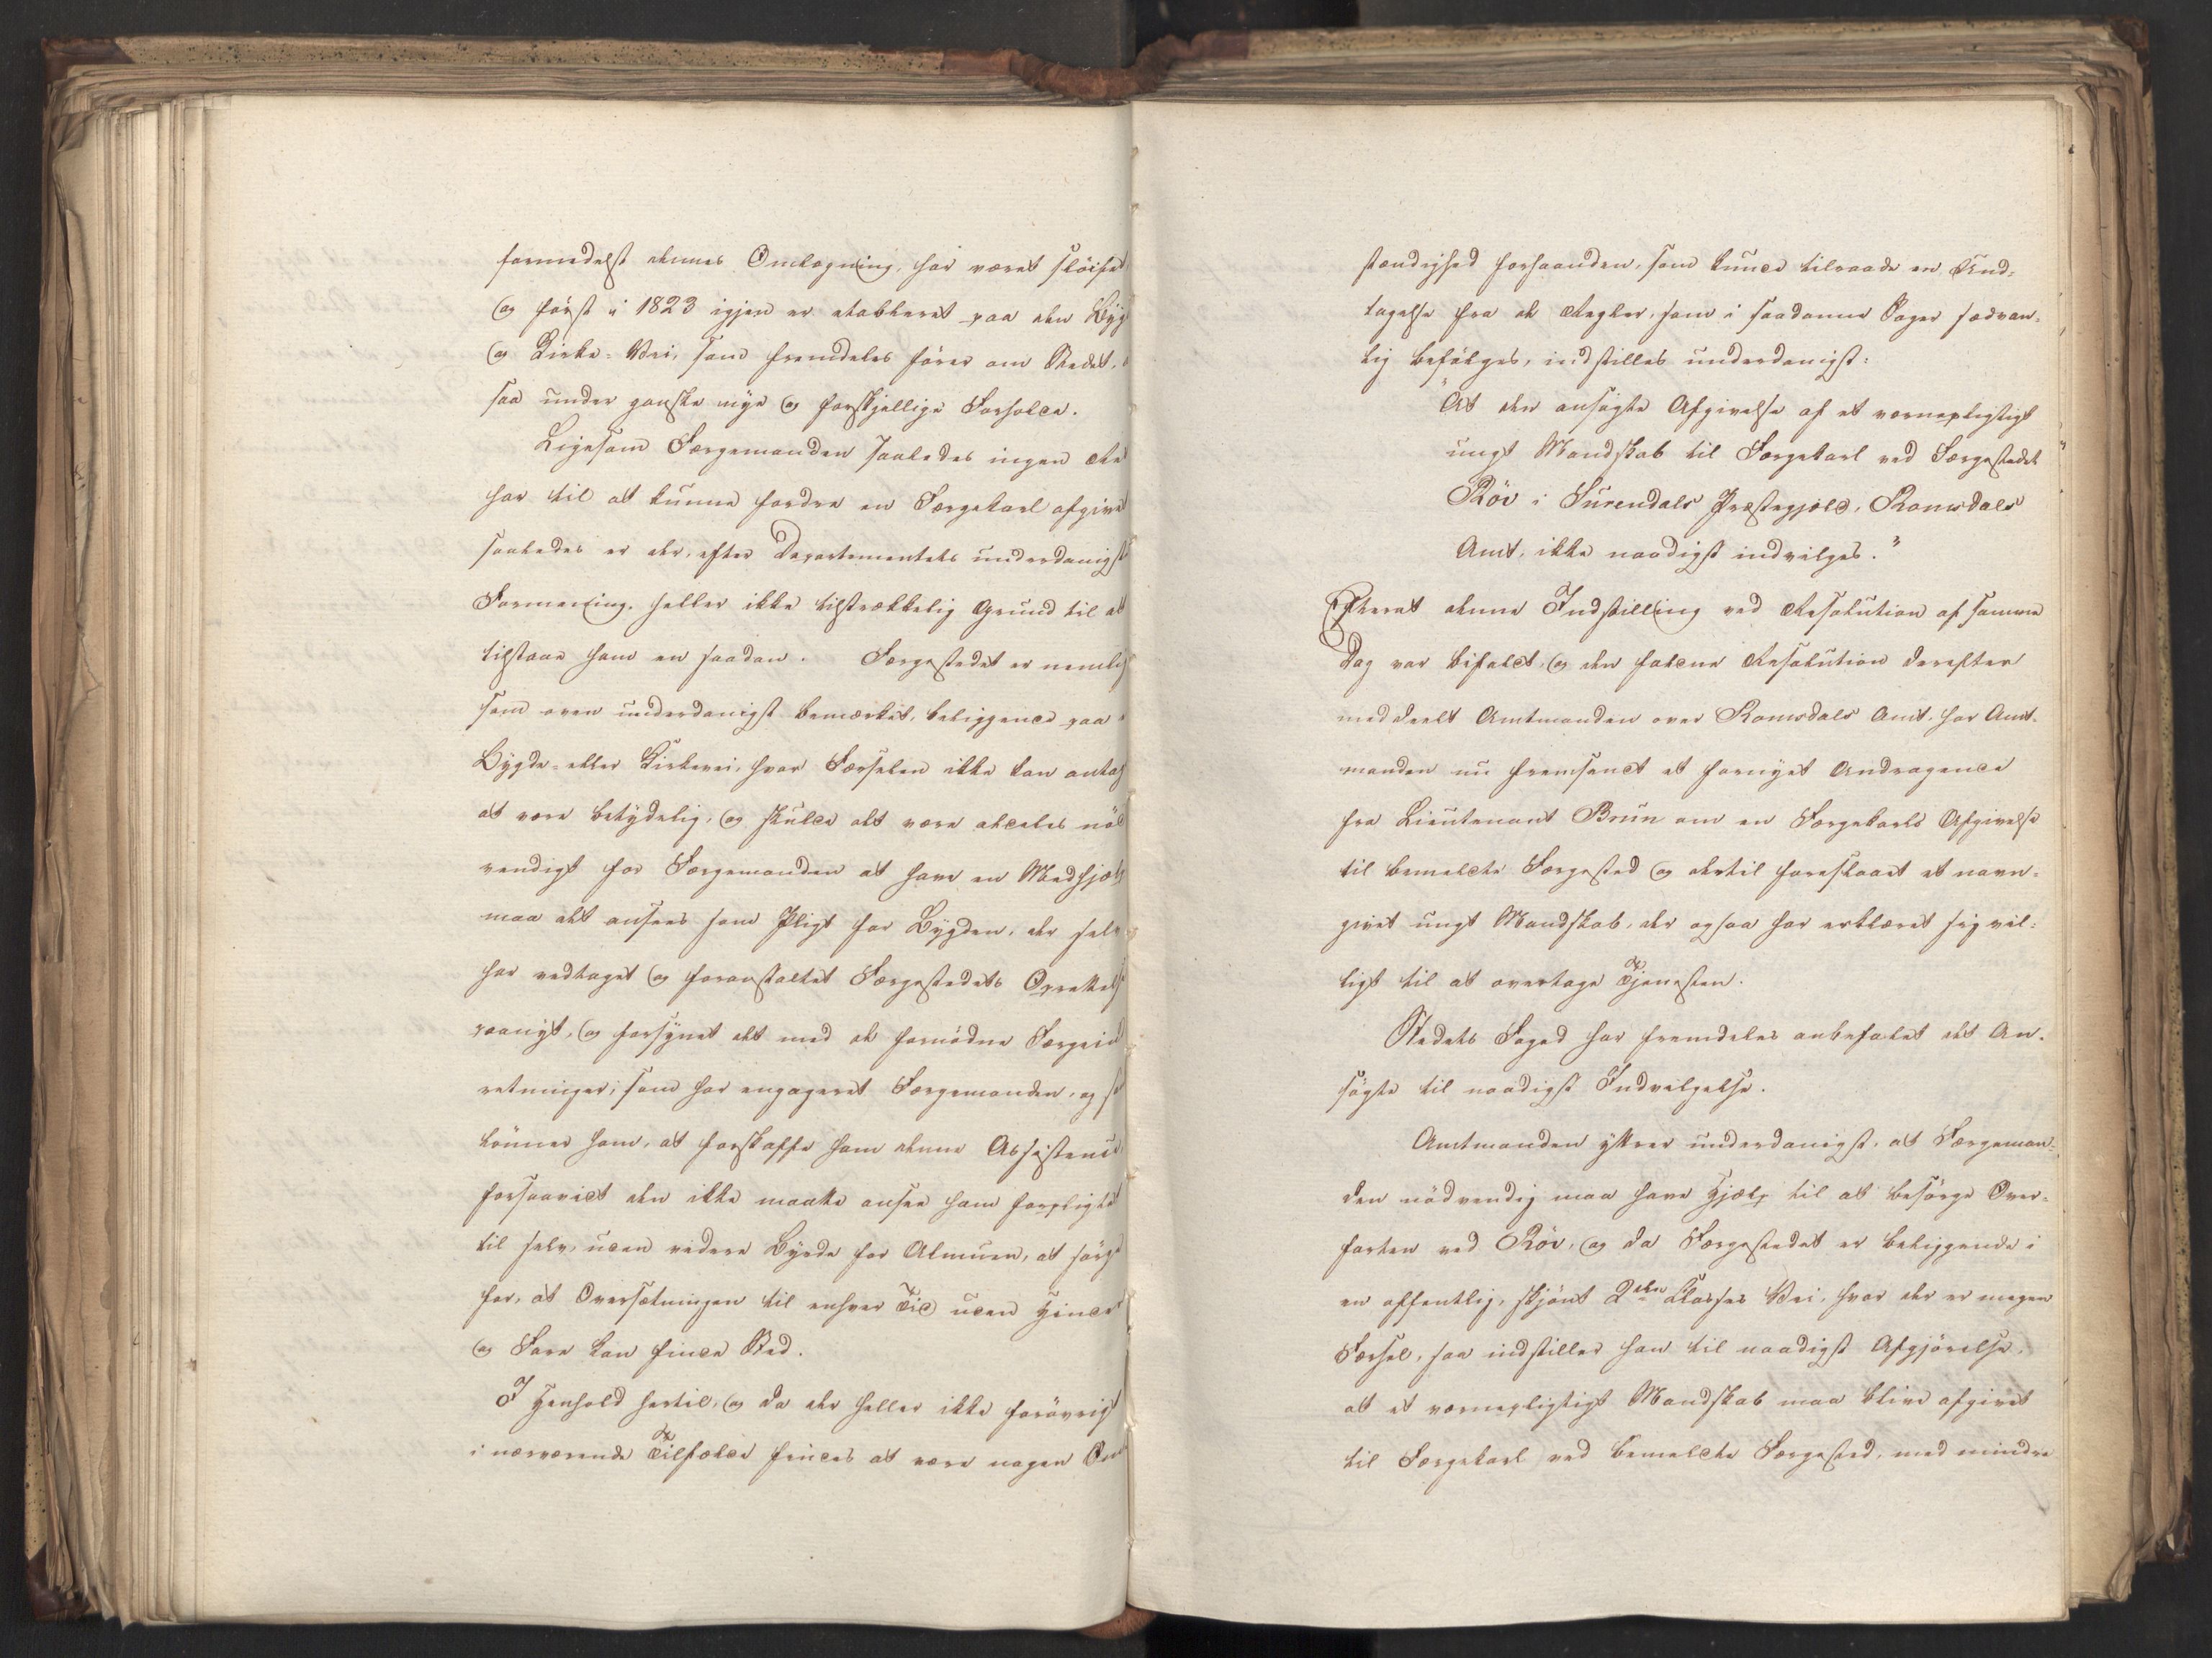 formedelst dennes Omlægning, har været sløifet
og først i 1823 igjen er etableret paa den Byg
og Kirke-Vei, som fremdeles fører om Stedet,
saa under ganske nye og forskjellige Forholde.
Ligesom Færgemanden saaledes ingen Ret
har til at kunne fordre en Færgekarl afgivet
saaledes er der, efter Departementets underdanigste
Formening, heller ikke tilstrækkelig Grund til at
tilstaae ham en saadan. Færgestedet er nemlig
som oven underdanigst bemærket, beliggende paa
Bygde- eller Kirkevei, hvor Færselen ikke kan antag
at være betydelig, og skulde det være aldeles nød
vendigt for Færgemanden at have en Medhjælp
maa det ansees som Pligt for Bygden, der selv
har vedtaget og foranstaltet Færgestedets Oprettelse
paanyt, og forsynet det med de fornødne Færgeind
retninger, som har engageret Færgemanden, og som
lønner ham, at forskaffe ham denne Assistence,
forsaavidt den ikke maatte ansee ham forpligtet
til selv, uden videre Byrde for Almuen, at sørge
for, at Oversætningen til enhver Tid uden Hinder
og Fare kan finde Sted.
I Henhold hertil, og da der heller ikke forøvrigt
i nærværende Tilfælde findes at være nogen Om
stændighed forhaanden, som kunde tilraade en Und-
tagelse fra de Regler, som i saadanne Sager sædvan-
lig befølges, indstilles underdanigst:
"At den ansøgte Afgivelse af et værnepligtigt
ungt Mandskab til Færgekarl ved Færgestedet
Röv i Surendals Præstegjæld, Romsdals
Amt, ikke naadigst indvilges."
Efterat denne Indstilling ved Resolution af samme
Dag var bifaldt, og den faldne Resolution derefter
meddeelt Amtmanden over Romsdals Amt, har Amt-
manden nu fremsendt et fornyet Andragende
fra Lieutenant Brun om en Færgekarls Afgivelse
til bemeldte Færgested og dertil foreslaaet et navn-
givet ungt Mandskab, der ogsaa har erklæret sig vil-
ligt til at overtage Tjenesten.
Stedets Foged har fremdeles anbefalet det An-
søgte til naadigst Indvilgelse.
Amtmanden yttrer underdanigst, at Færgeman-
den nødvendig maa have Hjælp til at besørge Over-
farten ved Röv, og da Færgestedet er beliggende i
en offentlig, skjønt 2den Klasses Vei, hvor der er megen
Færsel, saa indstiller han til naadigst Afgjørelse,
at et værnepligtigt Mandskab maa blive afgivet
til Færgekarl ved bemeldte Færgested, med mindre